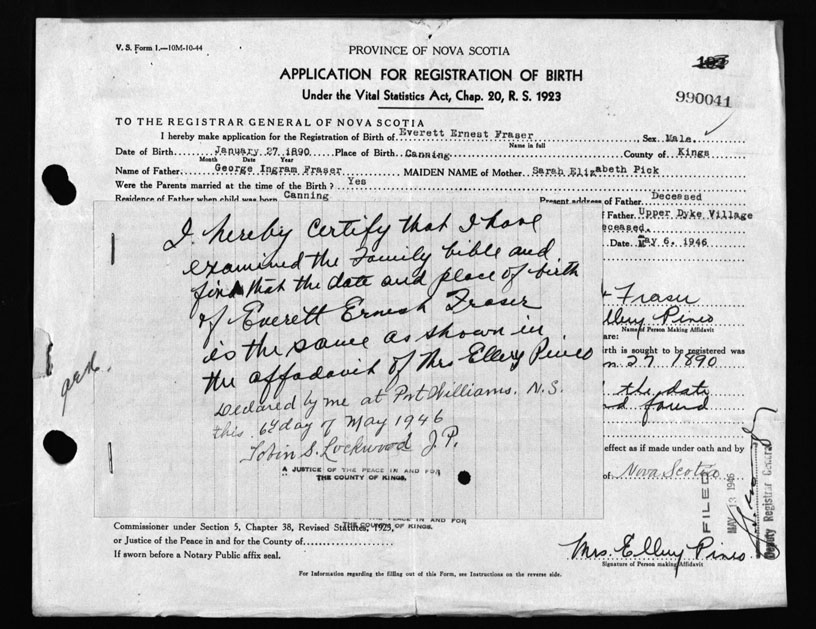 V. S. Form 1.—10M-10-44
PROVINCE OF NOVA SCOTIA
APPLICATION FOR REGISTRATION OF BIRTH
Under the Vital Statistics Act, Chap. 20, R. S. 1923
990041
TO THE REGISTRAR GENERAL OF NOVA SCOTIA
I hereby make application for the Registration of Birth of Everett Ernest Fraser, Sex Male.
Name in full
Date of Birth January 27 1890 Place of Birth Canning County of Kings
Month Date Year
Name of Father George Ingram Fraser MAIDEN NAME of Mother Sarah Elizabeth Pick
Were the Parents married at the time of the Birth? Yes
Residence of Father when child was born Canning Present address of Father Deceased
f Father. Upper Dyke Village
eceased.
Date. May 6, 1946
I hereby certify that I have
examined the Family bible and
find that the date and place of birth
of Everett Ernest Fraser
is the same as shown in
the affadavit of Mrs Ellery Pineo
Declared by me at Port Williams. N.S.
this 6th day of May 1946
Tobin S. Lockwood J.P.
A JUSTICE OF THE PEACE IN AND FOR
THE COUNTY OF KINGS.
Fraser
Ellery Pineo
Name of Person Making Affidavit
are:
irth is sought to be registered was
n 27 1890
the date
nd found
effect as if made under oath and by
of Nova Scotia
FILED
MAY 13 1946
Deputy Registrar General
PEACE IN AND FOR
THE COUNTY OF KINGS.
Commissioner under Section 5, Chapter 38, Revised Statutes, 1923,
or Justice of the Peace in and for the County of
If sworn before a Notary Public affix seal.
Mrs. Ellery Pineo
Signature of Person making Affidavit
For Information regarding the filling out of this Form, see Instructions on the reverse side.